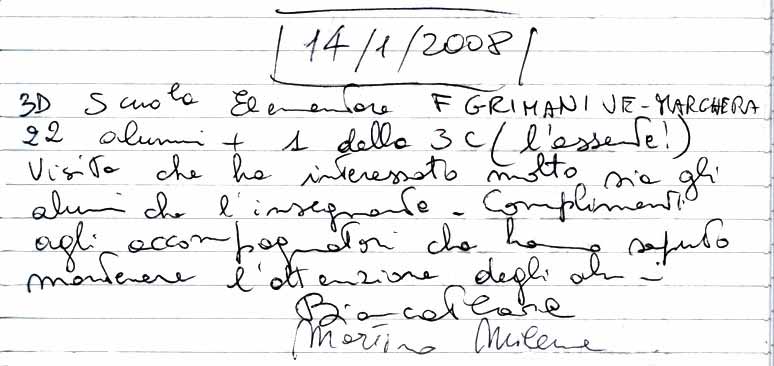 14/1/2008
3D Scuola Elementare F GRIMANI VE-MARGHERA
22 alunni + 1 della 3C (l'assente!)
Visita che ha interessato molto sia gli
alunni che l'insegnante - Complimenti
agli accompagnatori che hanno saputo
mantenere l'attenzione degli alunni
Martino Milena